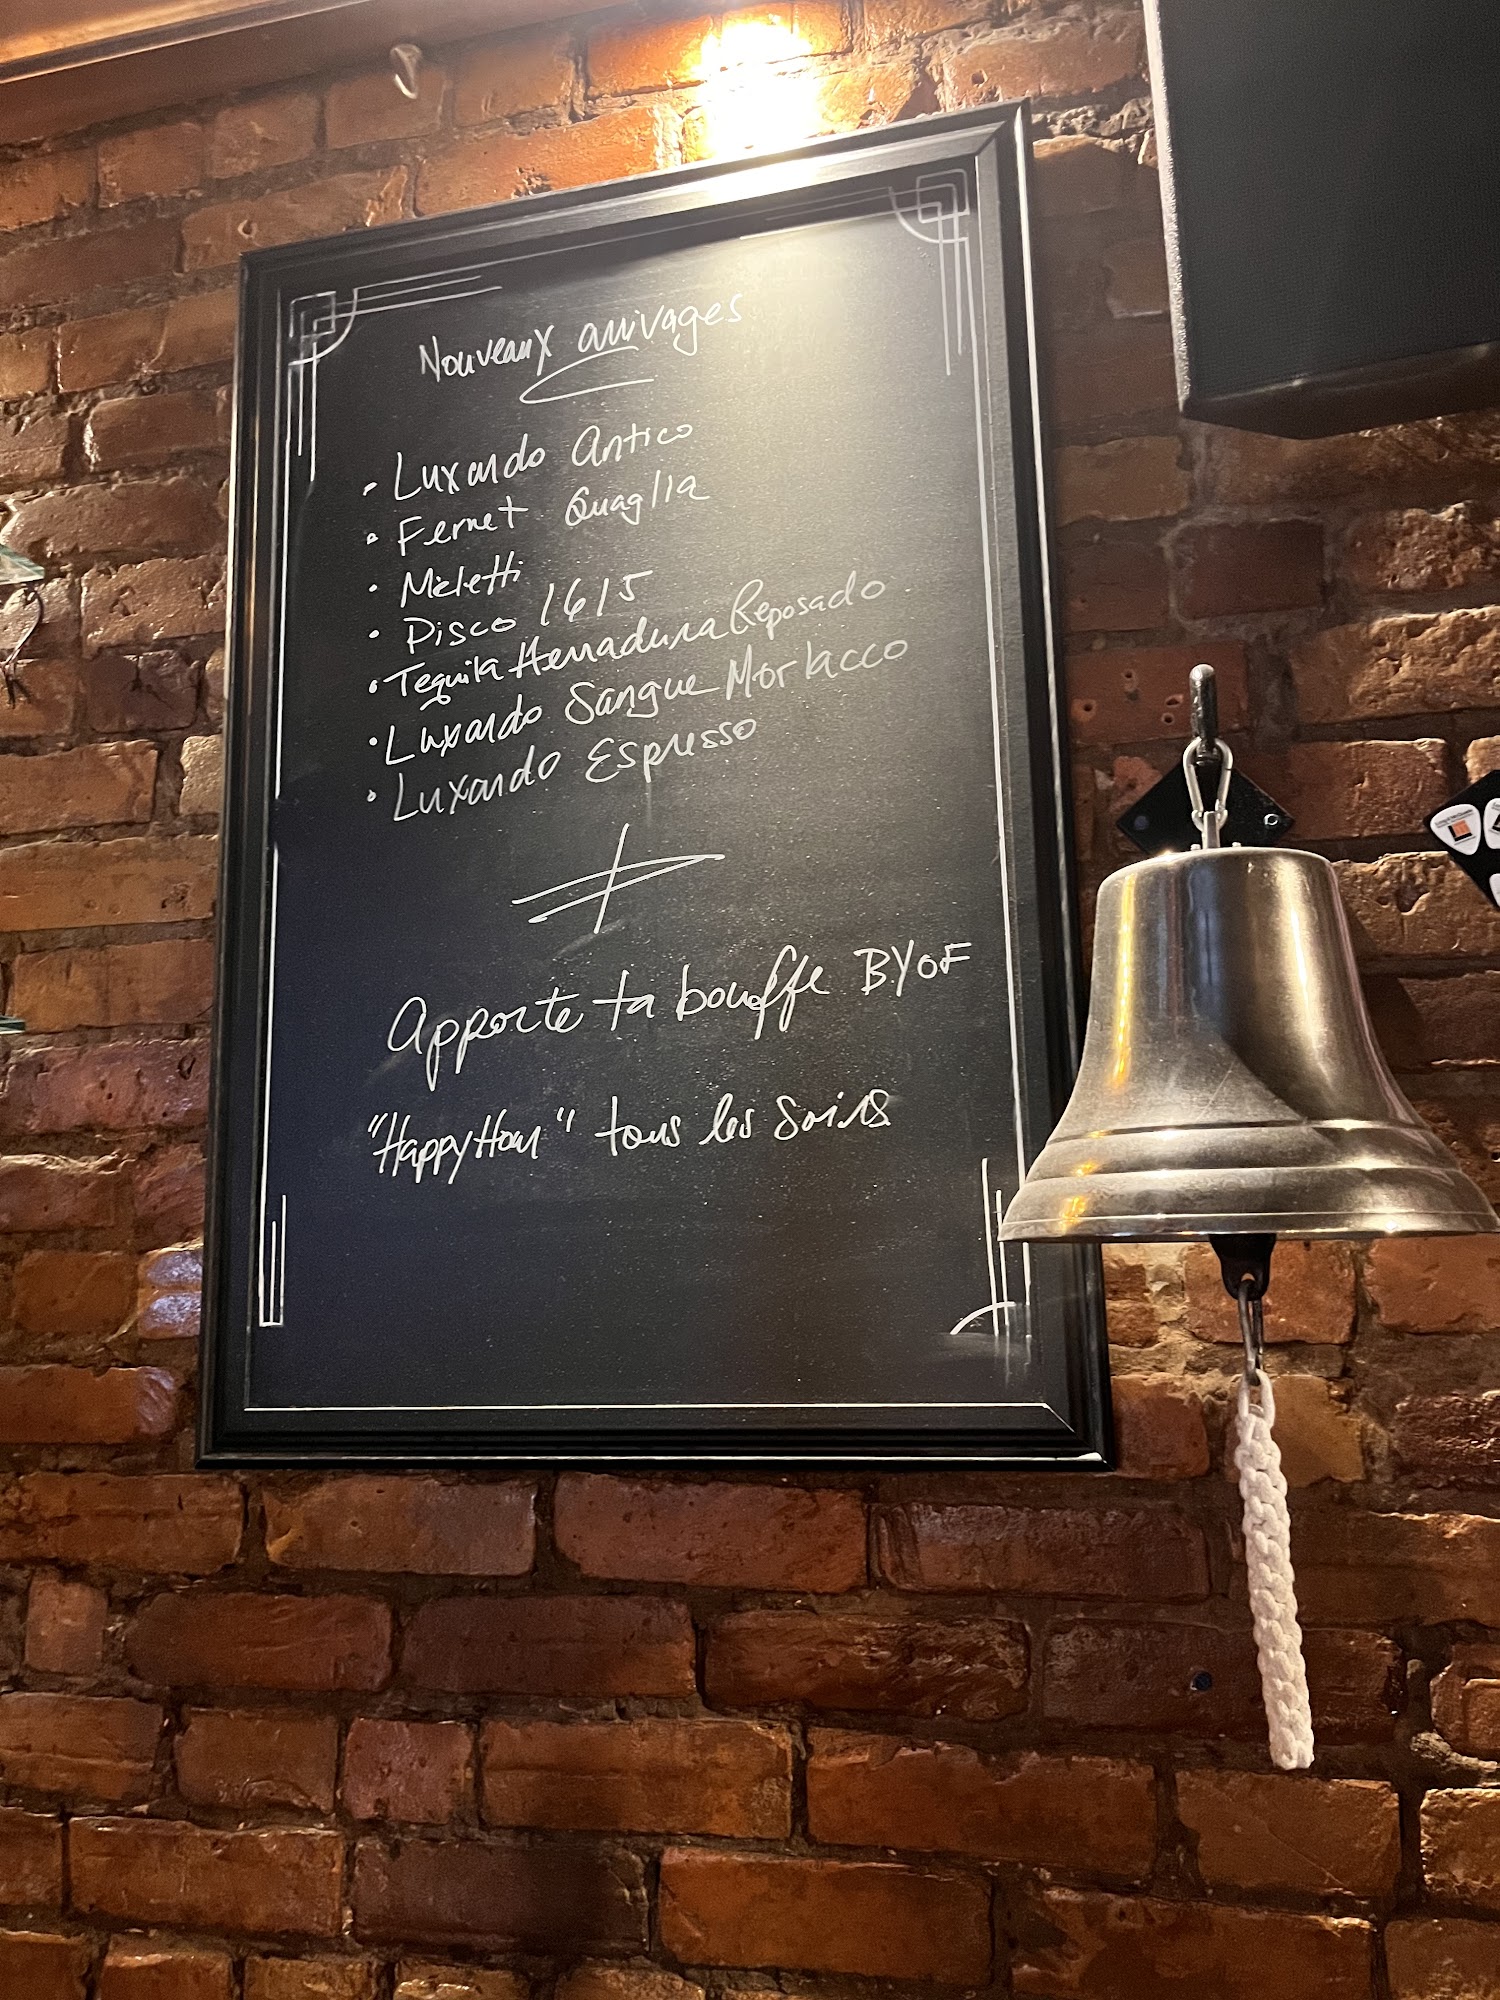 Nouveaux arrivages
• Luxardo Antico
• Fernet Quaglia
• Meletti
• Pisco 1615
• Tequila Herradura Reposado
• Luxardo Sangue Morlacco
• Luxardo Espresso
Apporte ta bouffe BYOF
"Happy Hour" tous les soirs